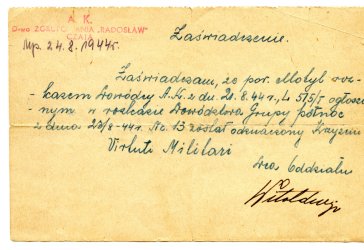 A. K.
D-wo ZGRUPOWANIA „RADOSŁAW"
CZATA
Mp. 24.8.1944r.
Zaświadczenie.
Zaświadczam, że por. Motyl roz-
- kazem Dowódcy A.K. z du. 21.8.44r., L 575/I ogłoszo-
nym w rozkazie Dowództwa Grupy północ
z dnia 23/8-44r. Nr. 13 został odznaczony Krzyżem
Virtuti Militari
Dca Oddziału
Witold mjr